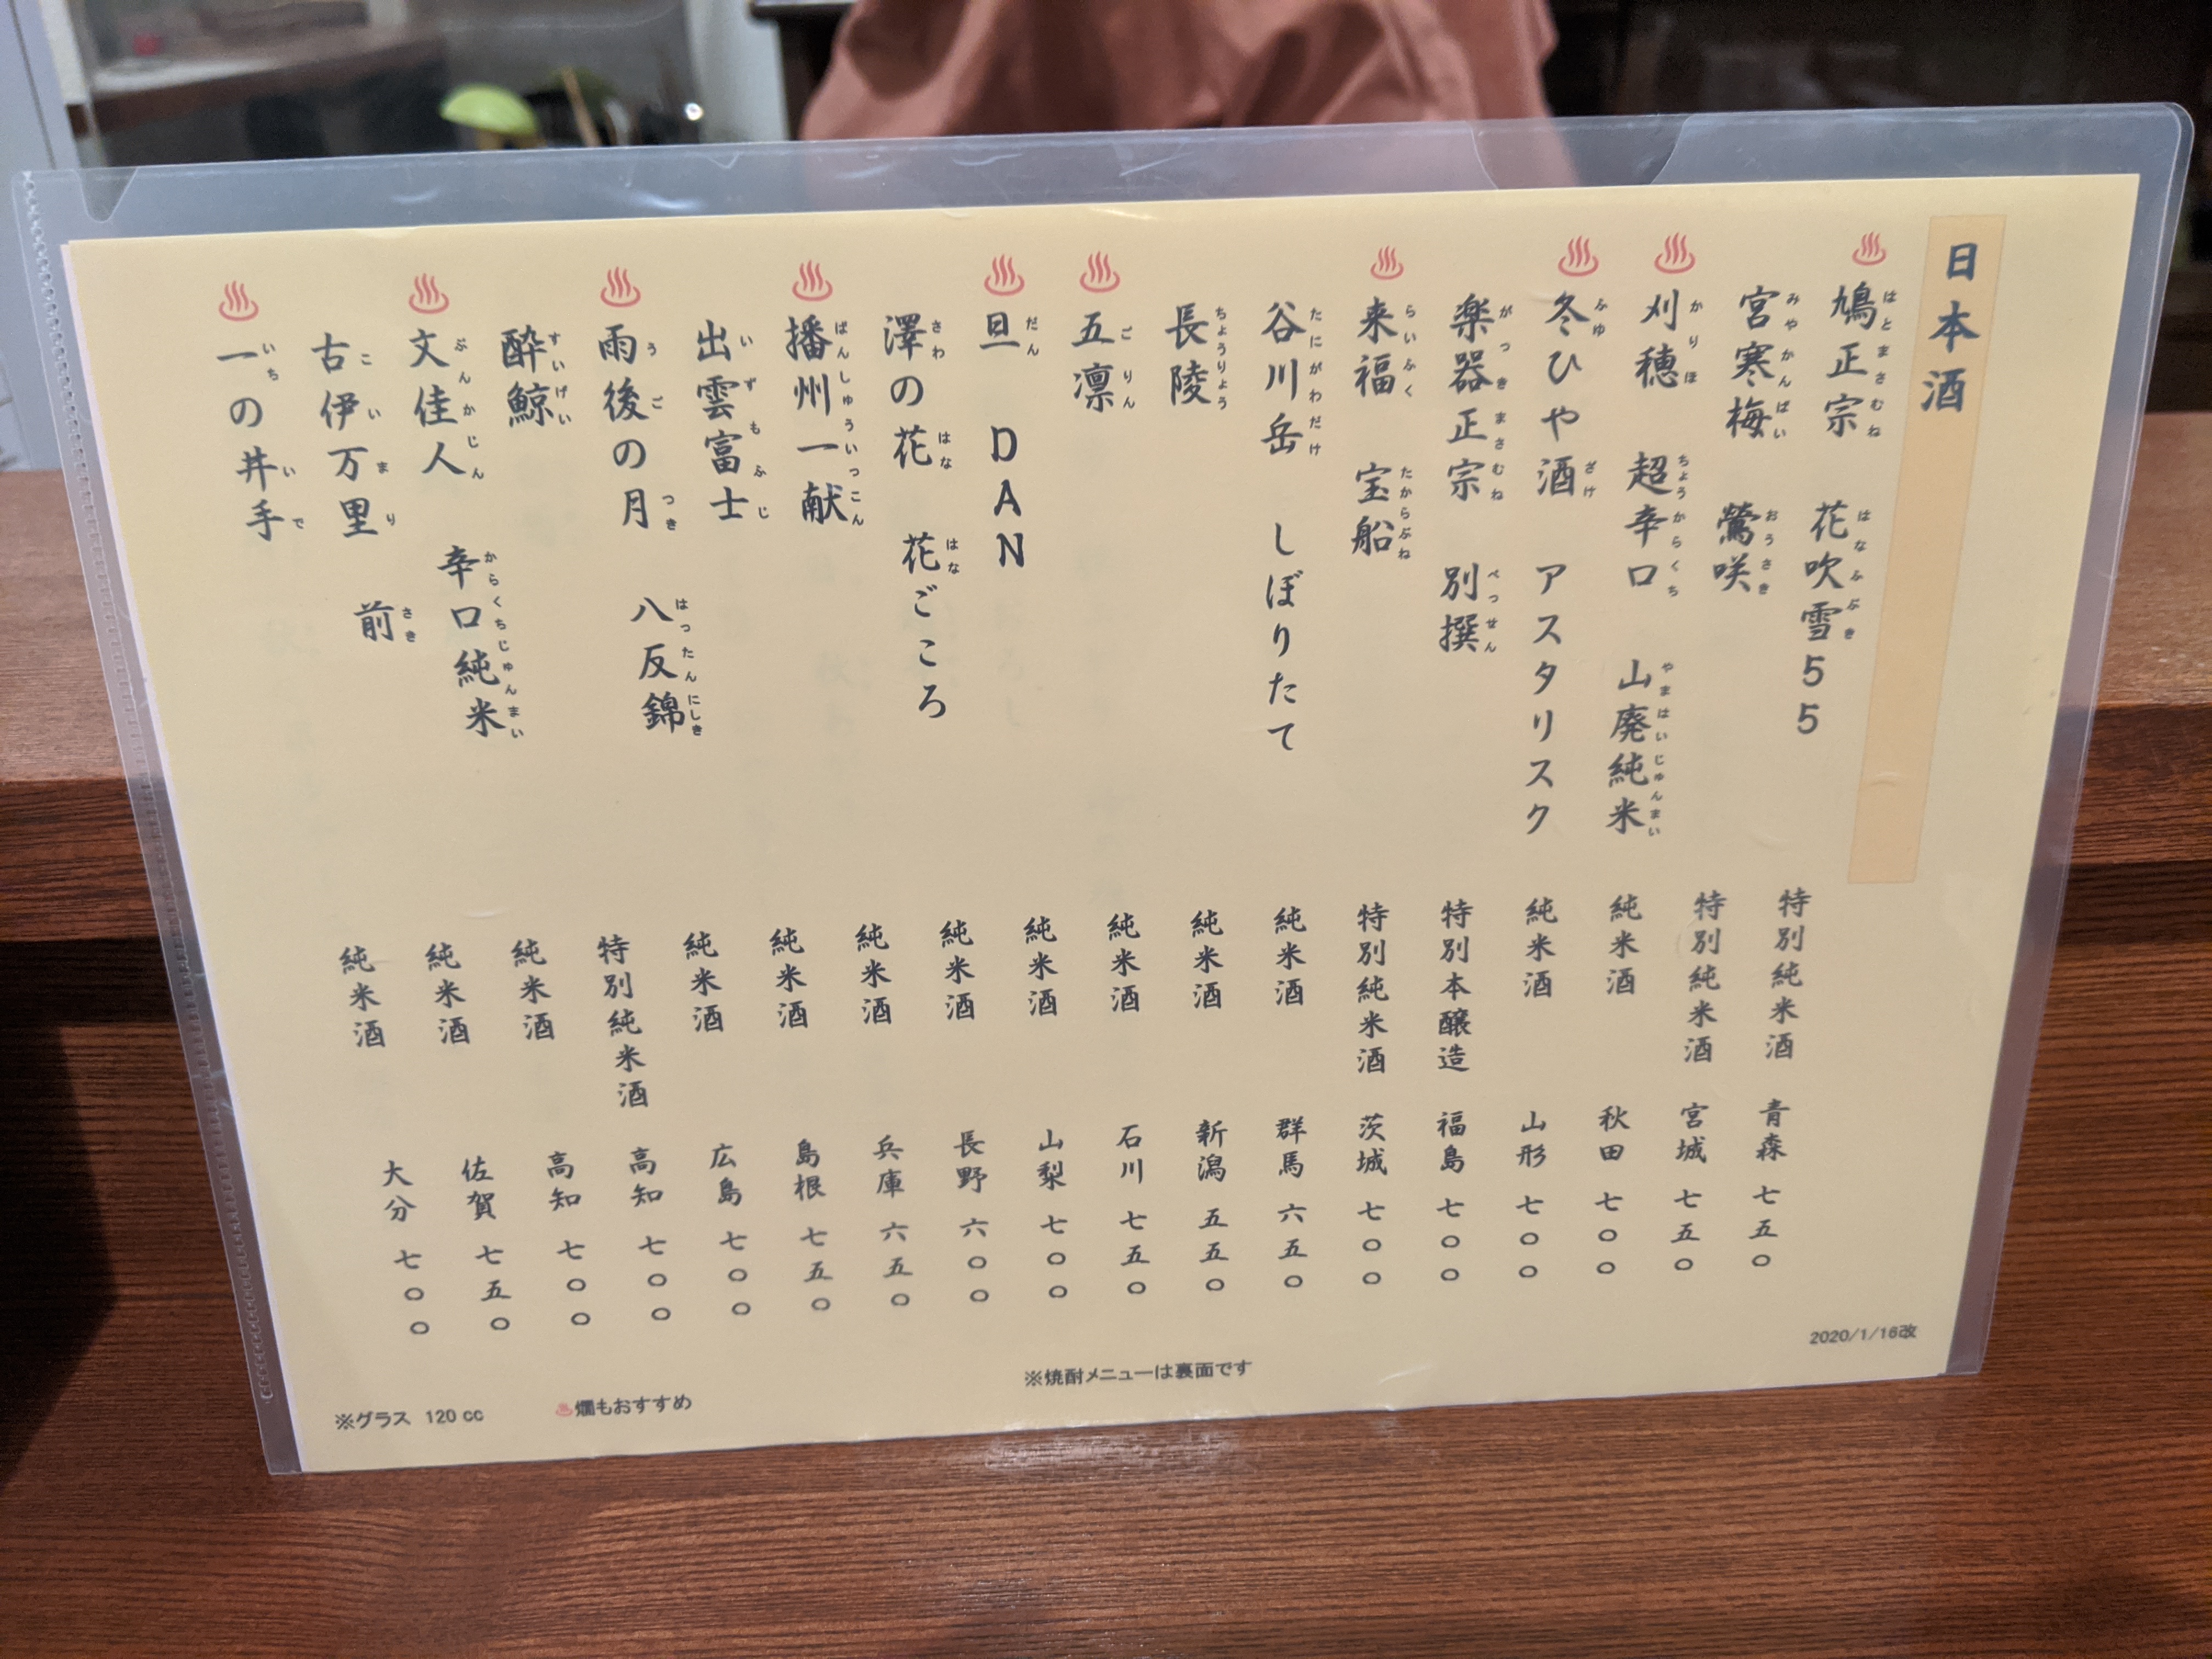 日本酒
♨鳩正宗 花吹雪55 特別純米酒 青森 七五〇
宮寒梅 鶯咲 特別純米酒 宮城 七五〇
♨刈穂 超辛口 山廃純米 純米酒 秋田 七〇〇
♨冬ひや酒 アスタリスク 純米酒 山形 七〇〇
楽器正宗 別撰 特別本醸造 福島 七〇〇
♨来福 宝船 特別純米酒 茨城 七〇〇
谷川岳 しぼりたて 純米酒 群馬 六五〇
長陵 純米酒 新潟 五五〇
♨五凛 純米酒 石川 七五〇
♨旦 DAN 純米酒 山梨 七〇〇
澤の花 花ごころ 純米酒 長野 六〇〇
♨播州一献 純米酒 兵庫 六五〇
出雲富士 純米酒 島根 七五〇
♨雨後の月 八反錦 純米酒 広島 七〇〇
酔鯨 特別純米酒 高知 七〇〇
♨文佳人 辛口純米 純米酒 高知 七〇〇
古伊万里 前 純米酒 佐賀 七五〇
♨一の井手 純米酒 大分 七〇〇
2020/1/16改
※焼酎メニューは裏面です
♨燗もおすすめ
※グラス 120cc